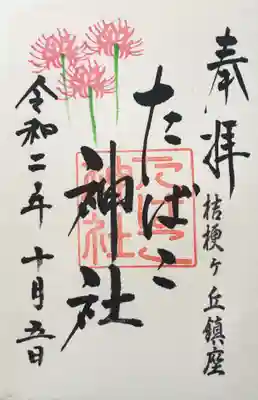 奉拝
桔梗ヶ丘鎮座
たばこ神社
たばこ神社
令和二年十月五日